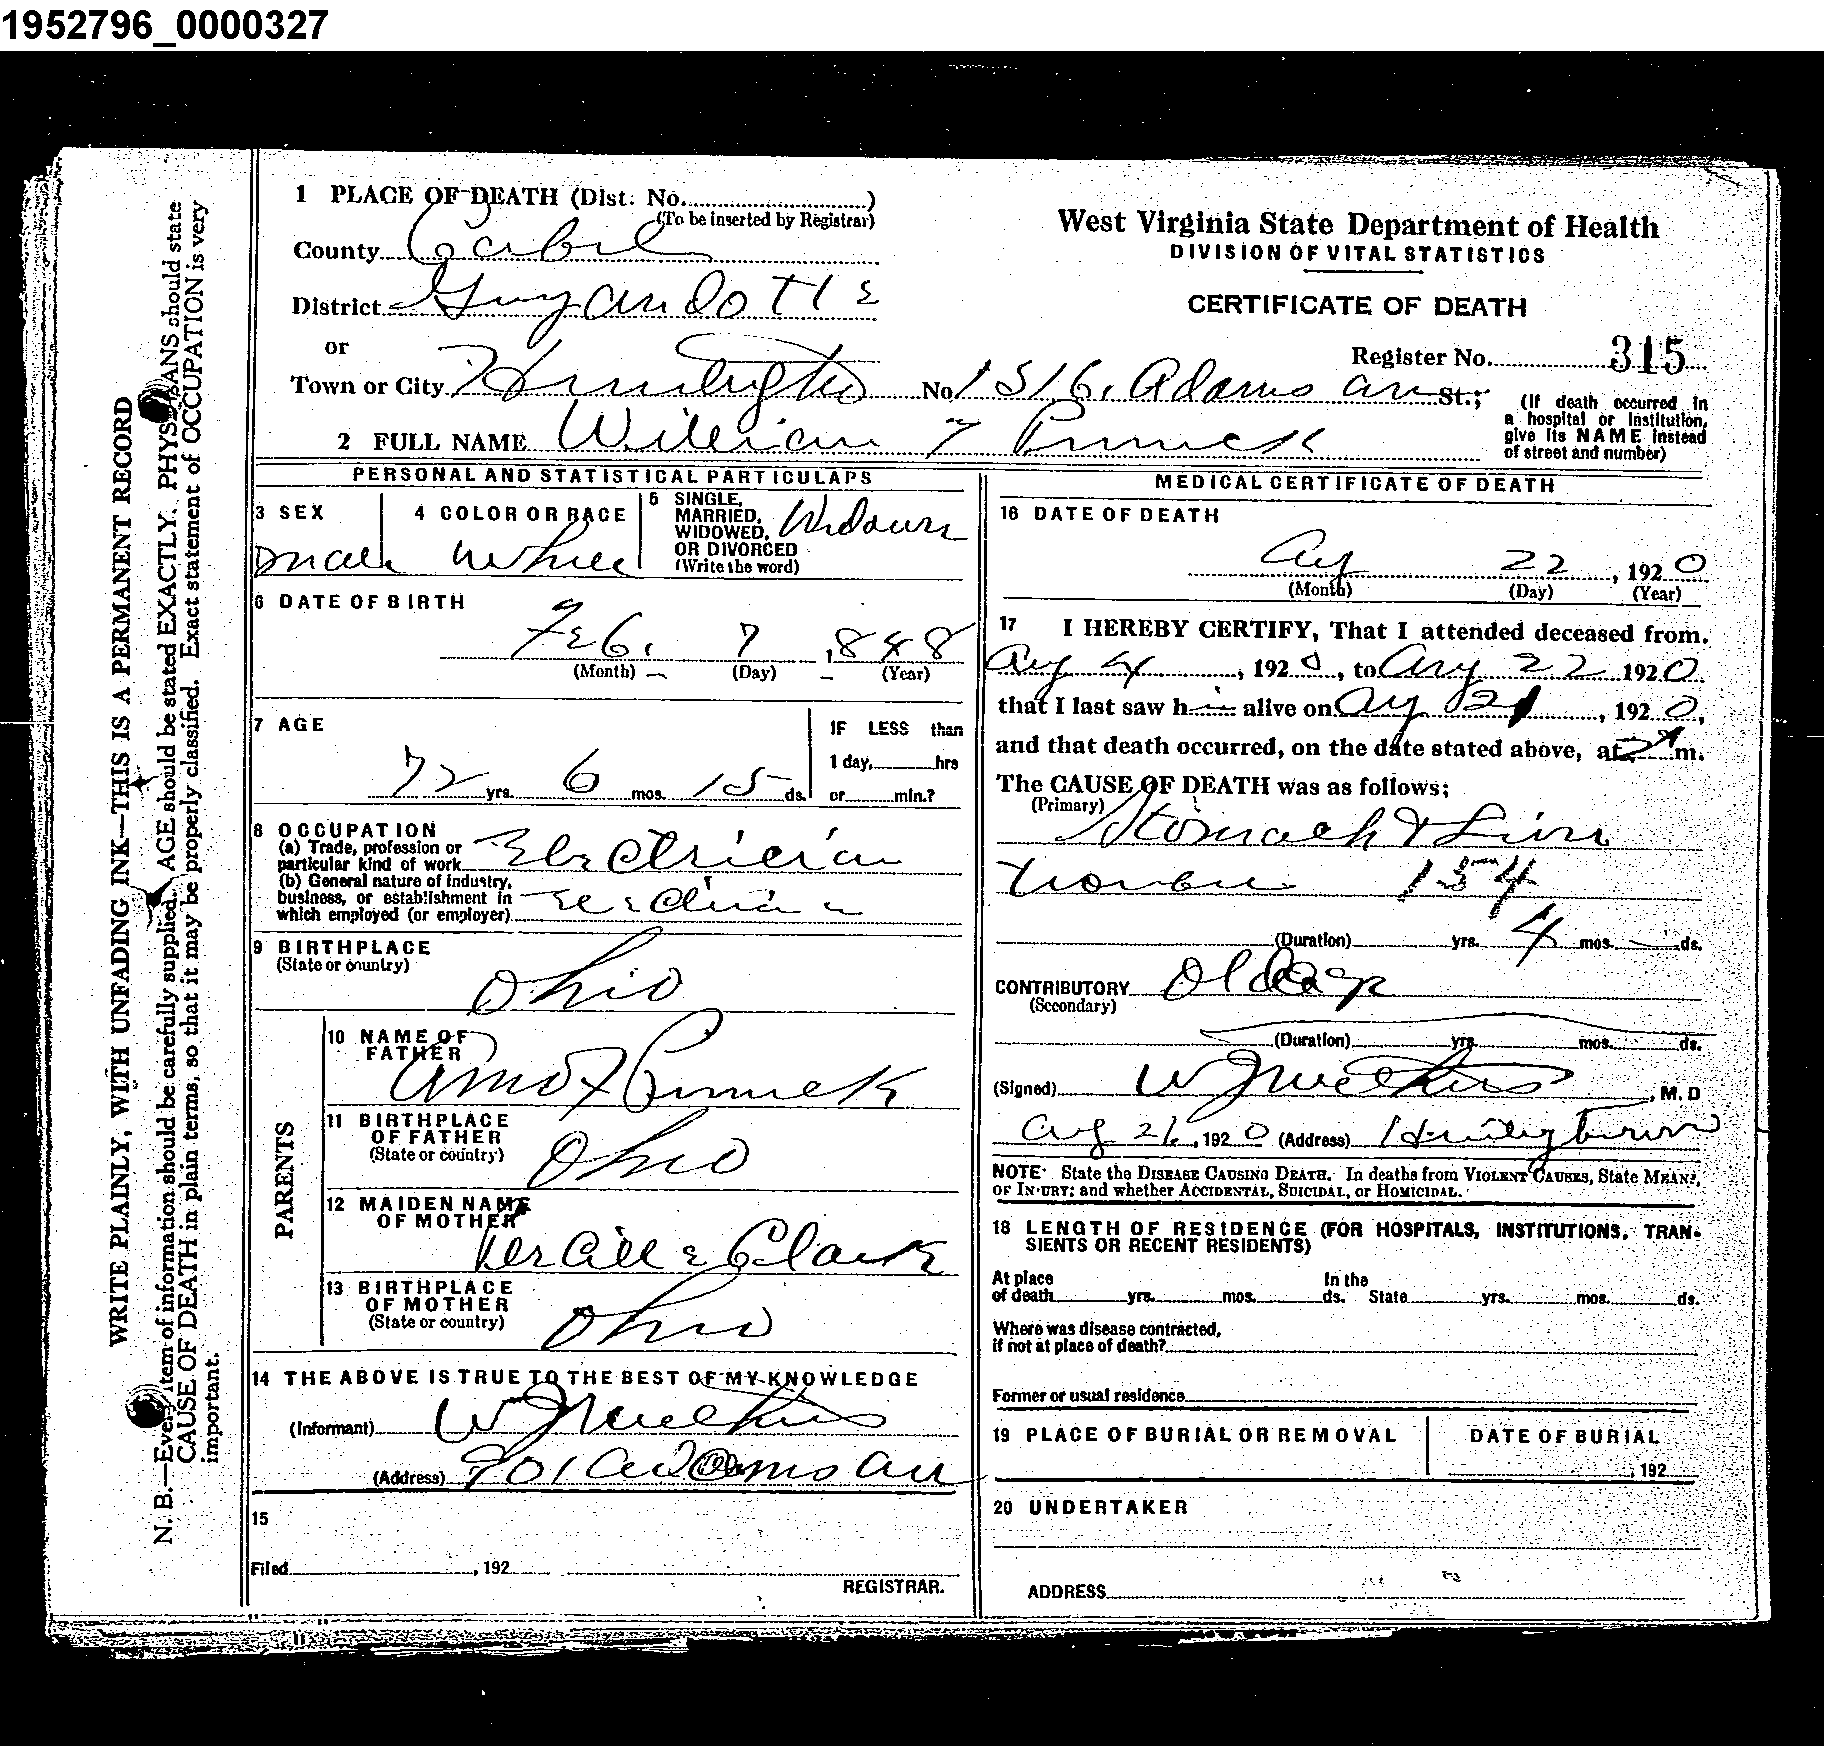 1952796_0000327
1 PLACE OF DEATH (Dist. No. )
(To be inserted by Registrar)
County Cabell
District Guyandotte
or
Town or City Huntington No 1516. Adams ave St.;
2 FULL NAME William
West Virginia State Department of Health
DIVISION OF VITAL STATISTICS
CERTIFICATE OF DEATH
Register No. 315
(If death occurred in
a hospital or institution,
give its NAME instead
of street and number)
PERSONAL AND STATISTICAL PARTICULARS
3 SEX
male
4 COLOR OR RACE
White
5 SINGLE,
MARRIED,
WIDOWED,
OR DIVORCED
(Write the word)
Widower
6 DATE OF BIRTH
Feb. 7 , 848
(Month) (Day) (Year)
7 AGE
72 yrs. 6 mos. 15 ds.
IF LESS than
1 day, hrs
or min.?
8 OCCUPATION
(a) Trade, profession or
particular kind of work Electrician
(b) General nature of industry,
business, or establishment in
which employed (or employer)
9 BIRTHPLACE
(State or country)
Ohio
PARENTS
10 NAME OF
FATHER
11 BIRTHPLACE
OF FATHER
(State or country)
Ohio
12 MAIDEN NAME
OF MOTHER
Clark
13 BIRTHPLACE
OF MOTHER
(State or country)
Ohio
14 THE ABOVE IS TRUE TO THE BEST OF MY KNOWLEDGE
(Informant) W J
(Address) 901 Adams Ave
15
Filed , 192
REGISTRAR.
MEDICAL CERTIFICATE OF DEATH
16 DATE OF DEATH
Aug 22 , 1920
(Month) (Day) (Year)
17 I HEREBY CERTIFY, That I attended deceased from.
Aug 4 , 1920 , to Aug 22 1920
that I last saw him alive on Aug 21 , 1920,
and that death occurred, on the date stated above, at 2 A m.
The CAUSE OF DEATH was as follows;
(Primary)
Stomach & Liver
trouble 154
(Duration) yrs. 4 mos. ds.
CONTRIBUTORY Old age
(Secondary)
(Duration) yrs. mos. ds.
(Signed) W J , M. D
Aug 26, 1920 (Address) Huntington
NOTE State the DISEASE CAUSING DEATH. In deaths from VIOLENT CAUSES, State MEANS
OF INJURY; and whether ACCIDENTAL, SUICIDAL, or HOMICIDAL.
18 LENGTH OF RESIDENCE (FOR HOSPITALS, INSTITUTIONS, TRAN-
SIENTS OR RECENT RESIDENTS)
At place
of death yrs. mos. ds.
In the
State yrs. mos. ds.
Where was disease contracted,
if not at place of death?
Former or usual residence
19 PLACE OF BURIAL OR REMOVAL
DATE OF BURIAL
, 192
20 UNDERTAKER
ADDRESS
WRITE PLAINLY, WITH UNFADING INK—THIS IS A PERMANENT RECORD
N. B.—Every item of information should be carefully supplied. AGE should be stated EXACTLY. PHYSICIANS should state
CAUSE OF DEATH in plain terms, so that it may be properly classified. Exact statement of OCCUPATION is very
important.